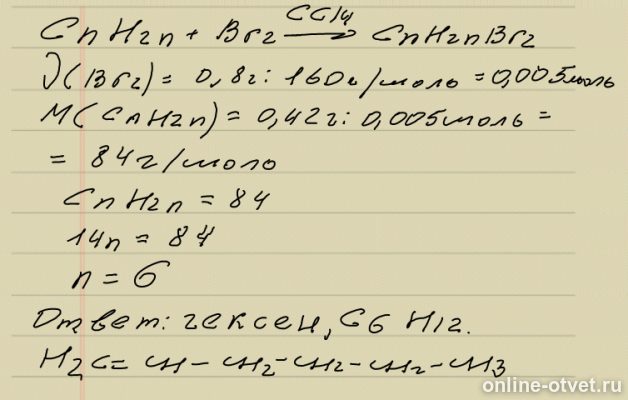 CCl4
CnH2n + Br2 → CnH2nBr2
ν(Br2) = 0,8г : 160г/моль = 0,005моль
M(CnH2n) = 0,42г : 0,005моль =
= 84г/моль
CnH2n = 84
14n = 84
n = 6
Ответ: гексен, C6H12.
H2C=CH-CH2-CH2-CH2-CH3
online-otvet.ru